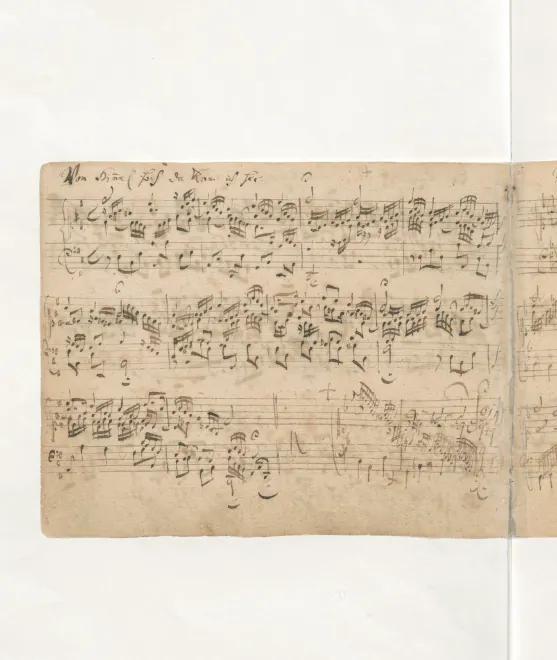 Vom Himel hoch da kom ich her